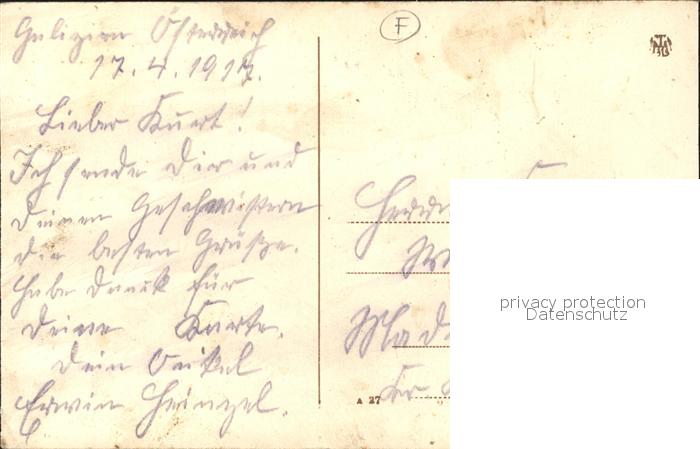 Galizien Österreich
17.4.1917.
Lieber Kurt!
Ich sende Dir und
deinen Geschwistern
die besten Grüße.
Habe Dank für
deine Karte.
Dein Onkel
Erwin Heinzel.
F
Herrn
A 27
privacy protection
Datenschutz